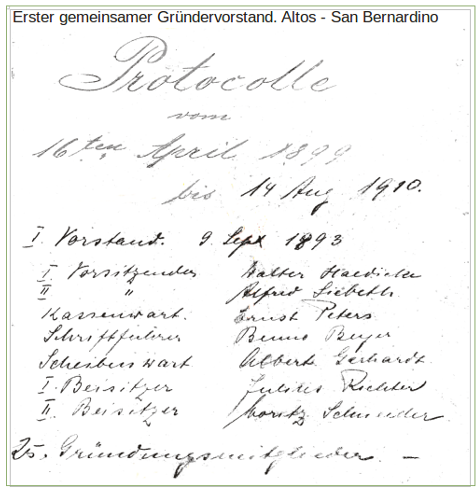 Erster gemeinsamer Gründervorstand. Altos - San Bernardino
Protocolle
vom
16ten April 1899
bis 14 Aug 1910.
I. Vorstand. 9 Sept 1893
I Vorsitzender Walter Haedicke
II " Alfred Siebeth
Kassenwart. Ernst Peters
Schriftführer Benno Beyer
Scheibenwart Albert Gerhardt.
I Beisitzer Julius Richter
II. Beisitzer Moritz Schneider
25. Gründungsmitglieder. —